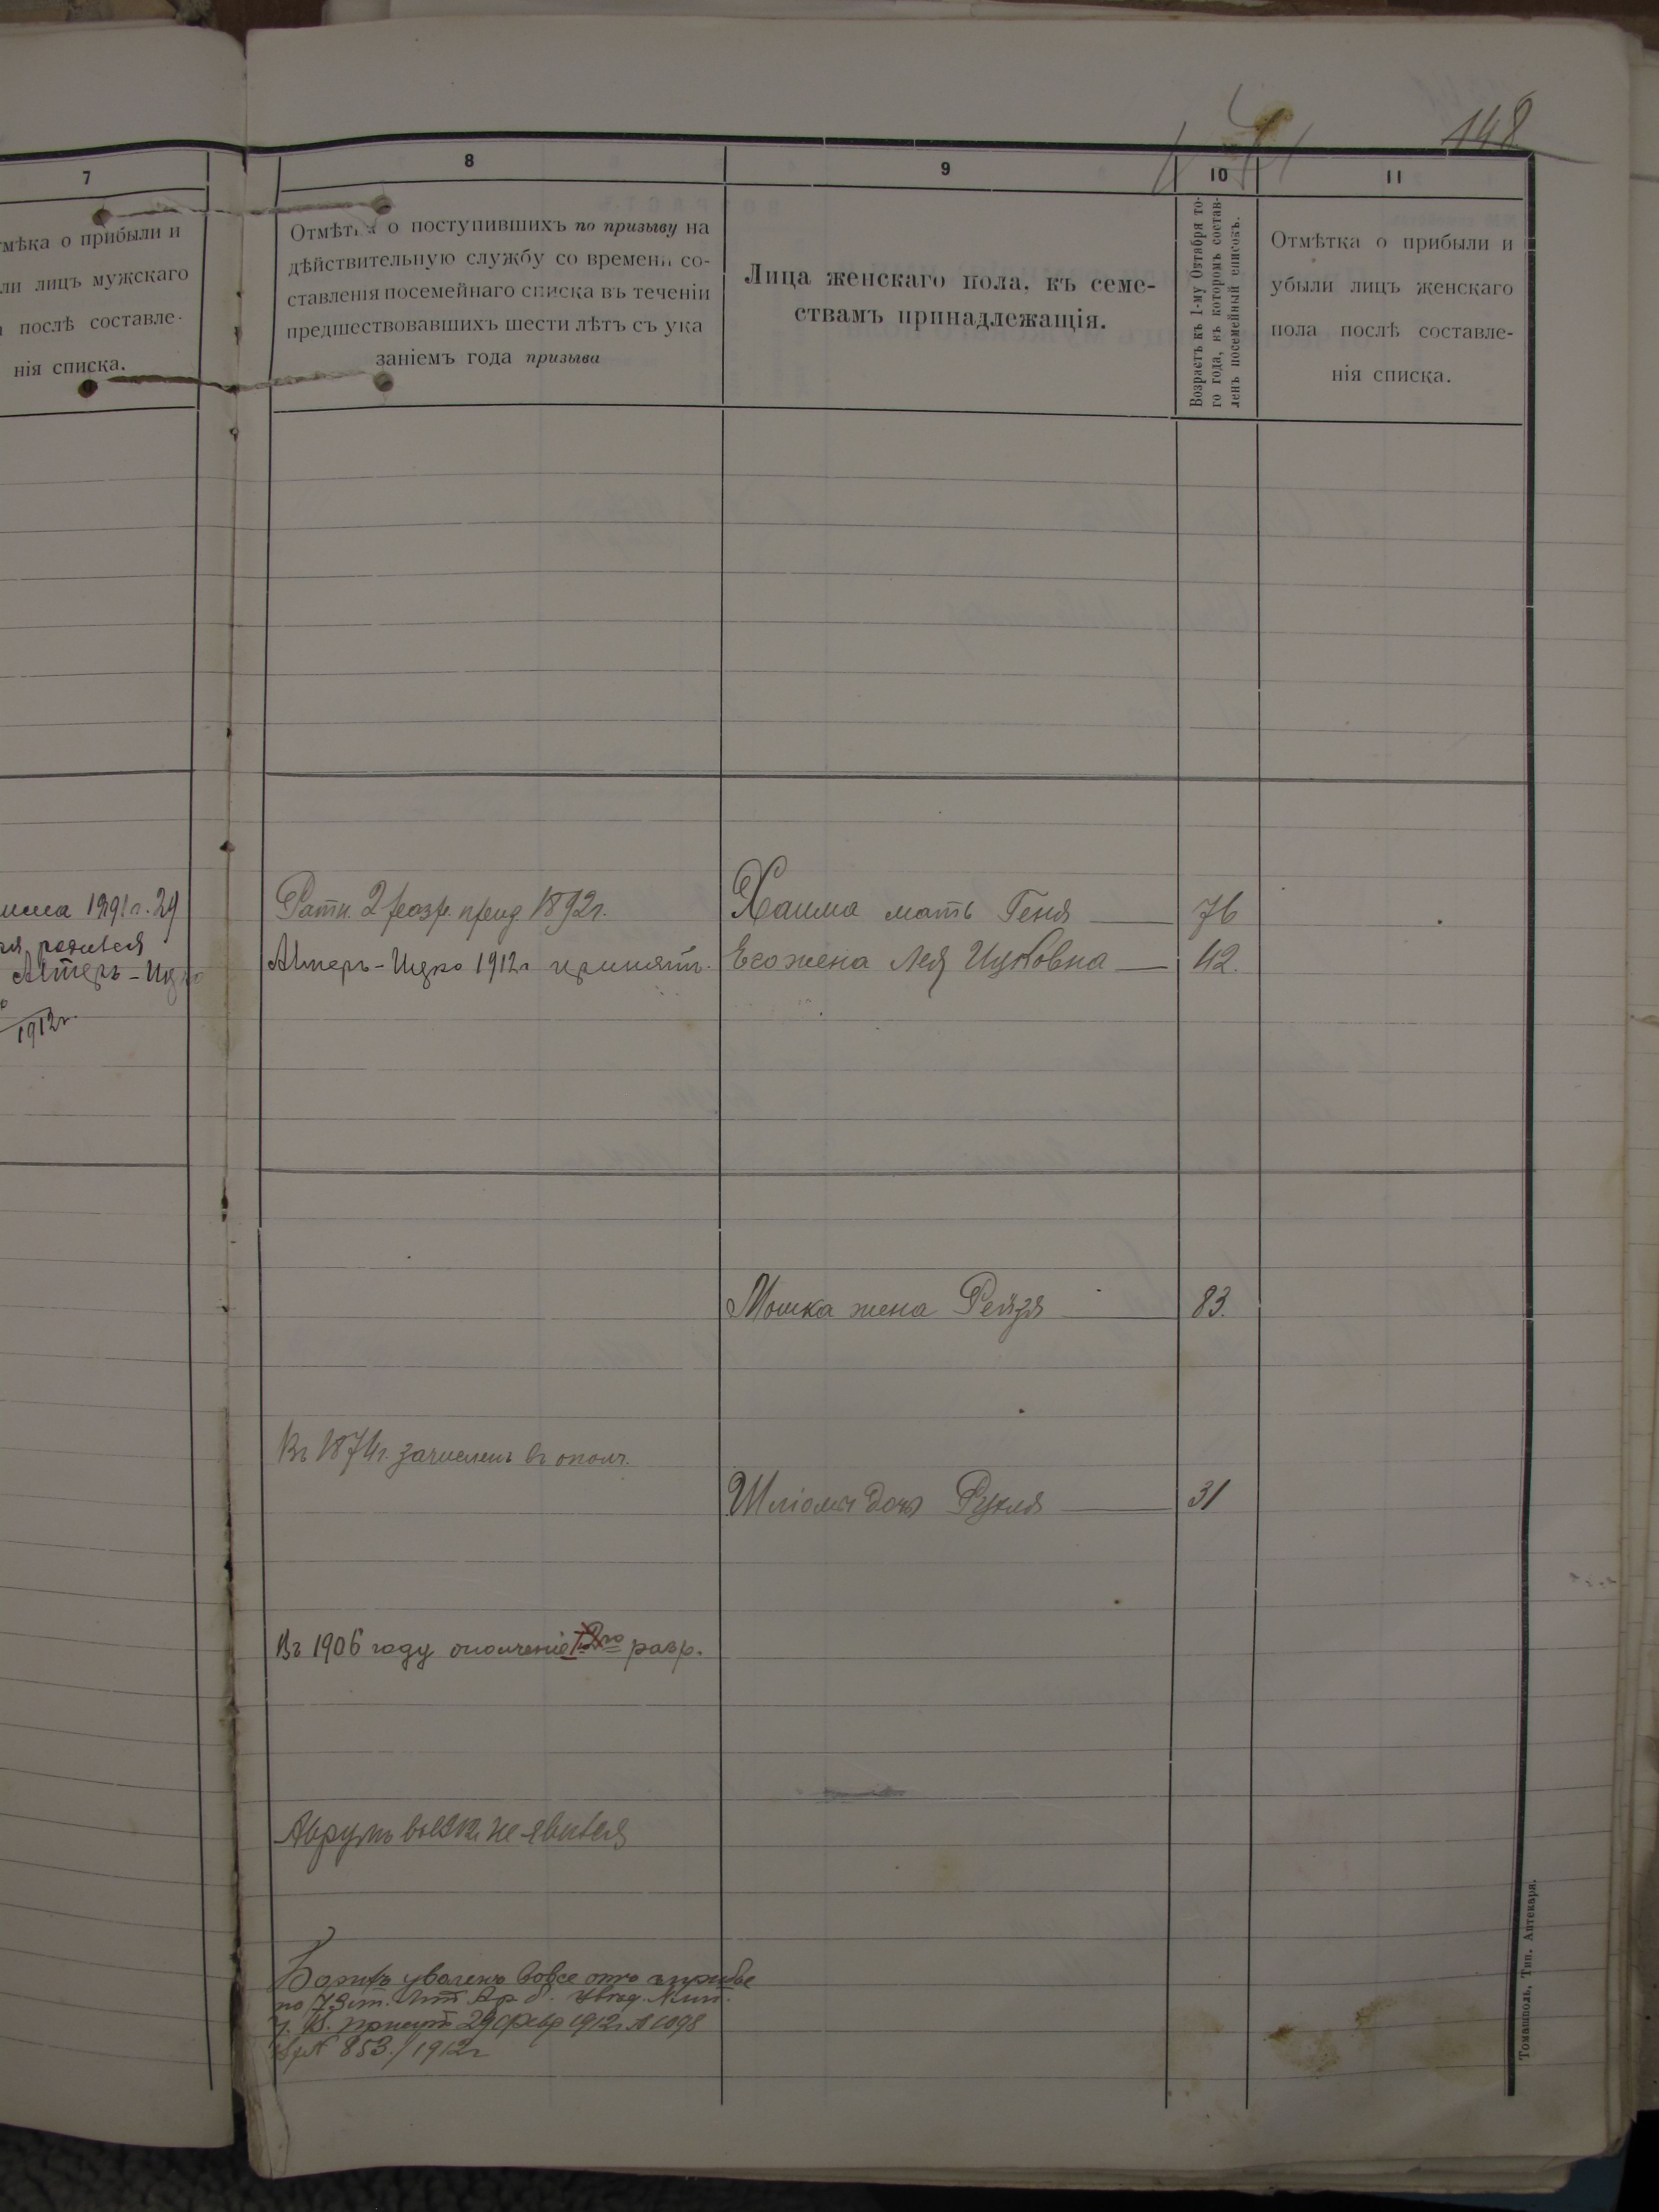 148
7
8
9
10
11
тмѣка о прибыли и
ли лицъ мужскаго
послѣ составле-
нія списка.
Отмѣтка о поступившихъ по призыву на
дѣйствительную службу со времени со-
ставленія посемейнаго списка въ теченіи
предшествовавшихъ шести лѣтъ съ ука
заніемъ года призыва
Лица женскаго пола, къ семе-
ствамъ принадлежащія.
Возрастъ къ 1-му Октября то-
го года, въ которомъ состав-
ленъ посемейный списокъ.
Отмѣтка о прибыли и
убыли лицъ женскаго
пола послѣ составле-
нія списка.
Альтеръ-Ицко
1912г.
Ратн. 2 разр. 1892г.
Хаима мать Геня 76
Альтеръ-Ицко 1912г принятъ.
Его жена Лея Ицковна 42.
Мошка жена Рейзя 83.
Въ 1874г. зачисленъ въ ополч.
Шліомы дочь Рухля 31
Въ 1906 году ополченіе разр.
Аврумъ не явился
уволенъ вовсе отъ
29 Февр 1912г № 1098
№ 853./1912г
Томашполь, Тип. Аптекаря.